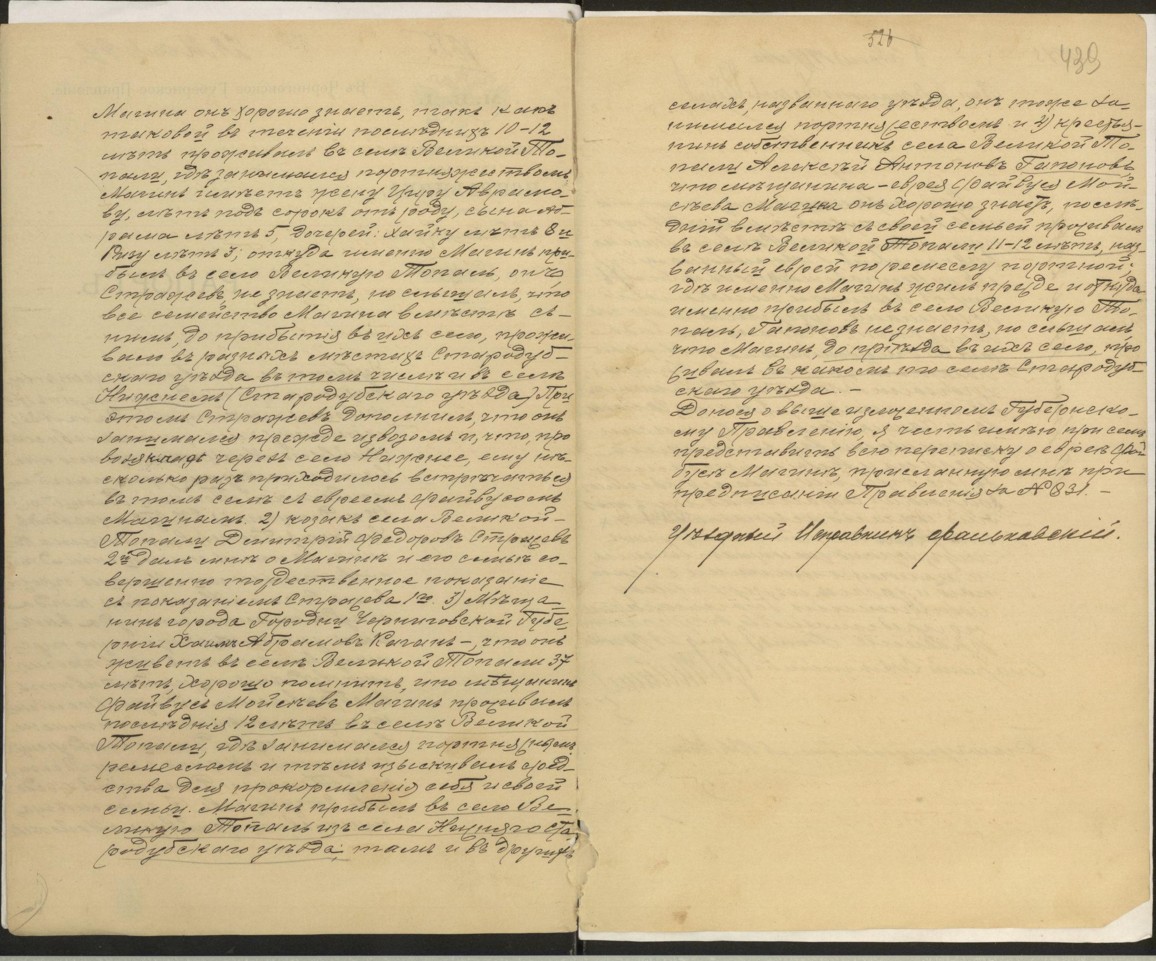 Магина онъ хорошо знаетъ, такъ какъ
таковой въ теченіи послѣднихъ 10-12
лѣтъ проживалъ въ селѣ Великой То-
пали, гдѣ занимался портняжествомъ,
Магинъ имѣетъ жену Цыру Аврамо-
ву, лѣтъ подъ сорокъ отъ роду, сына Аб-
рама лѣтъ 5, дочерей: Хайку лѣтъ 8 и
лѣтъ 3; откуда именно Магинъ при-
былъ въ село Великую Топаль, онъ
Стражевъ, не знаетъ, но слышалъ, что
все семейство Магина вмѣстѣ съ
нимъ, до прибытія въ ихъ село, прожи-
вало въ разныхъ мѣстахъ Стародуб-
скаго уѣзда въ томъ числѣ и въ селѣ
Нижнемъ (Стародубскаго уѣзда). При
этомъ Стражевъ дополнилъ, что онъ
занимался прежде извозомъ и, что, про
возя кладь черезъ село Нижнее, ему нѣ-
сколько разъ приходилось встрѣчаться
въ томъ селѣ съ евреемъ Файвусомъ
Магинымъ. 2) козакъ села Великой-
Топали Дмитрій Федоровъ Стражевъ
2й далъ мнѣ о Магинѣ и его семьѣ со-
вершенно тождественное показаніе
съ показаніемъ Стражева 1го. 3) Мѣща-
нинъ города Городни Черниговской Губе-
рніи Хаимъ Абрамовъ Каганъ -, что онъ
живетъ въ селѣ Великой Топали 37
лѣтъ, хорошо помнитъ, что мѣщанинъ
Файвусъ Мойсѣевъ Магинъ проживалъ
послѣднія 12 лѣтъ въ селѣ Великой
Топали, гдѣ занимался портняжнымъ
ремесломъ и тѣмъ изыскивалъ сред-
ства для прокормленія себя и своей
семьи. Магинъ прибылъ въ село Ве-
ликую Топаль изъ села Нижняго Ста-
родубскаго уѣзда; тамъ и въ другихъ
526
439
селахъ, названнаго уѣзда, онъ тоже за-
нимался портняжествомъ и 4) крестья-
нинъ собственникъ села Великой То-
пали Алексѣй Антоновъ Гапоновъ
что мѣщанина - еврея Файвуся Мой-
сѣева Магина онъ хорошо знаетъ, послѣ-
дній вмѣстѣ съ своей семьей проживалъ
въ селѣ Великой Топали 11-12 лѣтъ, наз-
ванный еврей по ремеслу портной;
гдѣ именно Магинъ жилъ прежде и откуда
именно прибылъ въ село Великую То-
паль, Гапоновъ не знаетъ, но слышалъ
что Магинъ, до пріѣзда въ ихъ село, про
живалъ въ какомъ то селѣ Стародуб-
скаго уѣзда. -
Донося о вышеизложенномъ Губернско-
му Правленію, я честь имѣю при семъ
представить всю переписку о евреѣ Фай-
вусѣ Магинѣ, присланную мнѣ при
предписаніи Правленія за № 831. -
Уѣздный Исправникъ Фальковскій.